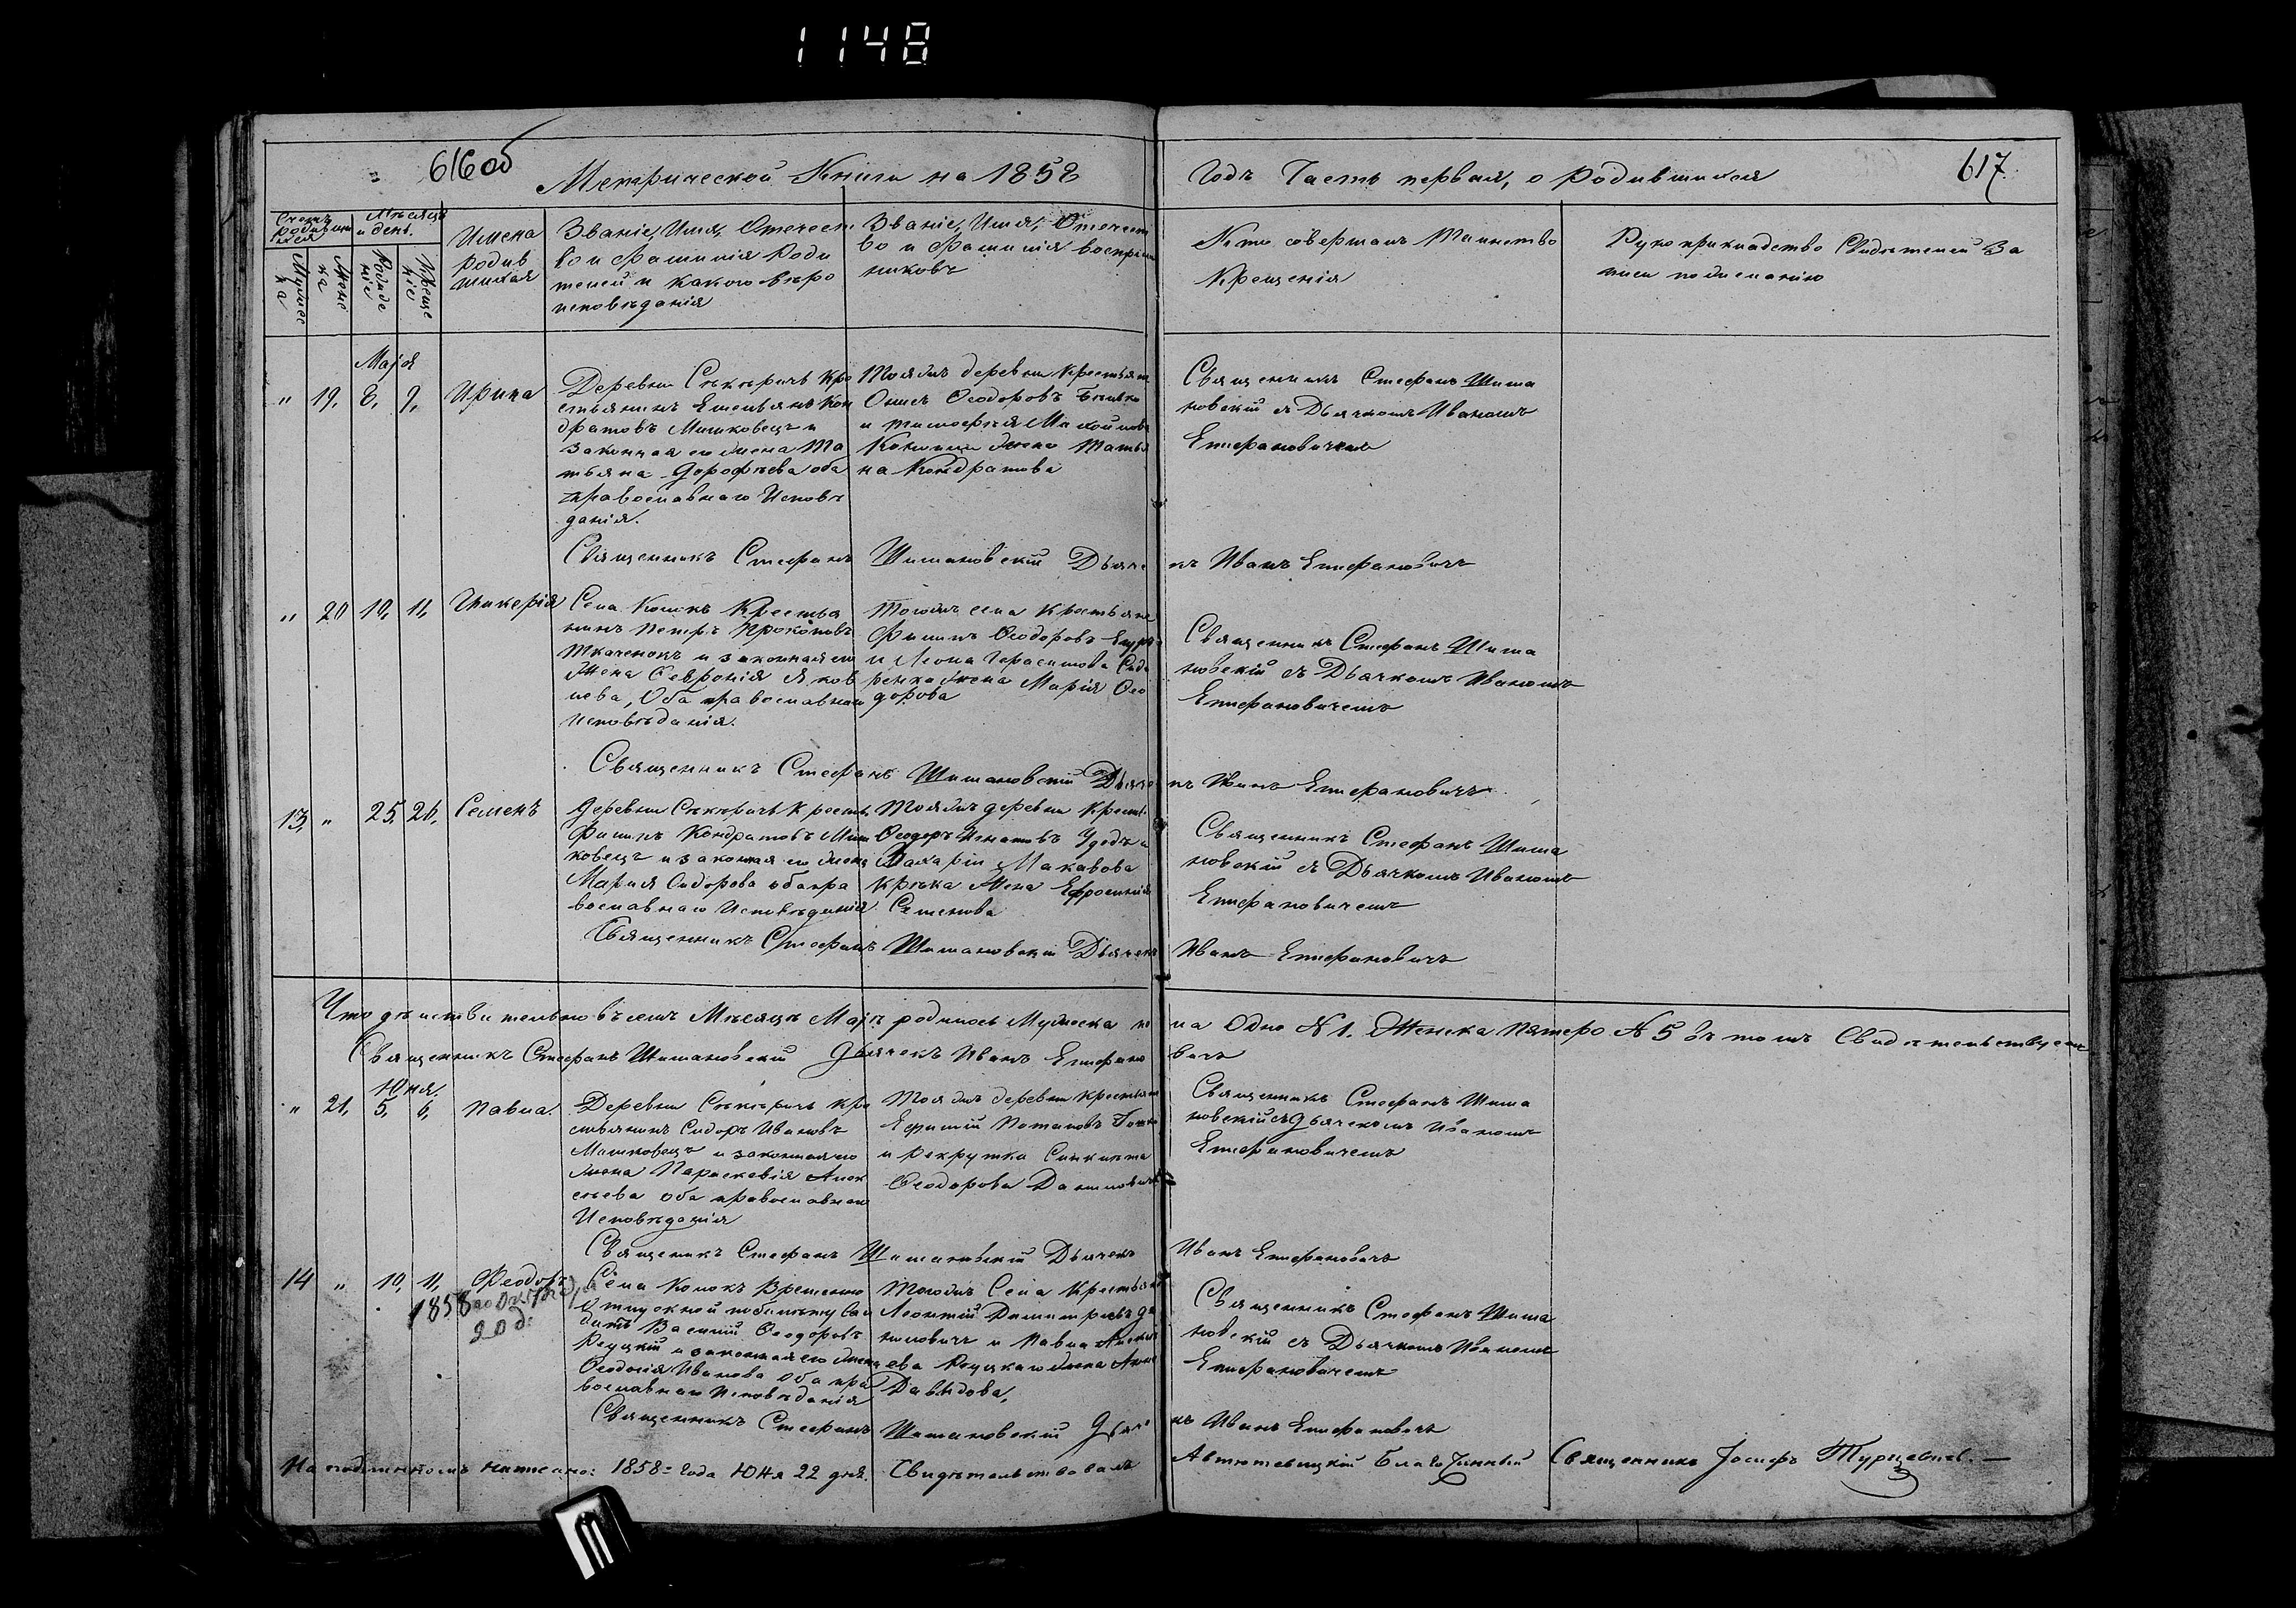 1148
616об
Метрической Книги на 1858
Годъ Часть первая, о родившихся
617.
Счетъ родившихся
Мѣсяцъ и день.
Мужеска
Женска
Рожденіе
Крещеніе
Имена
родив
шихся
Званіе, Имя, Отечест
во и Фамилія Роди
телей и какого вѣро
исповѣданія
Званіе, Имя, Отечест
во и Фамилія воспріем
никовъ
Кто совершалъ Таинство
Крещенія
Рукоприкладство Свидѣтелей За
писи по желанію
Маія
" 19, 8, 9, Ирина
Деревни Сѣкѣричъ Кре
стьянинъ Емельянъ Кон
дратовъ Мишковецъ и
Законная его жена Та
тьяна Дорофѣева оба
православнаго Исповѣ
данія.
Тояжъ деревни Крестьяне
Ѳеодоровъ
и жена Татья
на Кондратова
Священникъ Стефанъ Шима
новскій съ Дьячкомъ Иваномъ
Епифановичемъ
Священникъ Стефанъ Шимановскій Дьяче
къ Иванъ Епифановичъ
" 20 10, 11, Гликерія
Села Колкъ Крестья
нинъ Петръ Прокоповъ
Ткаченокъ и законная его
Жена Февронія Яков
лева, Оба православнаго
Исповѣданія.
Тогожъ села Крестьяне
Филипъ Ѳеодоровъ
и Леона Герасимова Сидо
ренка жена Марія Ѳео
дорова
Священникъ Стефанъ Шима
новскій съ Дьячкомъ Иваномъ
Епифановичемъ
Священникъ Стефанъ Шимановскій Дьяче
къ Иванъ Епифановичъ
13, " 25, 26, Семенъ
Деревни Сѣкѣричъ Крестья.
Филипъ Кондратовъ Миш
ковецъ и законная его жена
Марія Сидорова оба пра
вославнаго Исповѣданія
Тояжъ деревни Крестья.
Ѳеодоръ Игнатовъ и
Макавова
жена Ефросинія
Семенова
Священникъ Стефанъ Шима
новскій съ Дьячкомъ Иваномъ
Епифановичемъ
Священникъ Стефанъ Шимановскій Дьячекъ
Иванъ Епифановичъ
Что дѣйствительно въ семъ Мѣсяцѣ Маіѣ родилось Мужеска по
ла Одно N 1. Женска пятеро N 5 въ томъ Свидѣтельствуемъ
Священникъ Стефанъ Шимановскій Дьячекъ Иванъ Епифано
вичъ
Юня.
" 21, 5, 6, Павла.
Деревни Сѣкѣричъ кре
стьянинъ Сидоръ Ивановъ
Мишковецъ и законная его
жена Параскевія Алек
сѣева оба православнаго
Исповѣданія
Тояжъ деревни крестьяне
Ефимій Потаповъ
и рекрутка
Ѳеодорова
Священникъ Стефанъ Шима
новскій съ Дьячкомъ Иваномъ
Епифановичемъ
Священикъ Стефанъ Шимановскій Дьячекъ
Иванъ Епифановичъ
14 " 10, 11, Феодоръ
1858
20 д:
Села Колокъ Временно
Отпускной по билету Сол
датъ Василій Ѳеодоровъ
Рецкій и законная его жена
Ѳеодосія Иванова оба пра
вославнаго Исповѣданія
Тогожъ Села Крестьяне
Леонтій Димитріевъ Да
ниловичъ и Павла Алексѣ
ева Рецкаго жена Анна
Давыдова,
Священникъ Стефанъ Шима
новскій съ Дьячкомъ Иваномъ
Епифановичемъ
Священникъ Стефанъ Шимановскій Дьяче
къ Иванъ Епифановичъ
На подлинномъ написано: 1858 = года Юня 22 дня. Свидѣтельствовалъ
Автютевицкій Благочинный Священникъ Іосифъ Турцевичъ. —